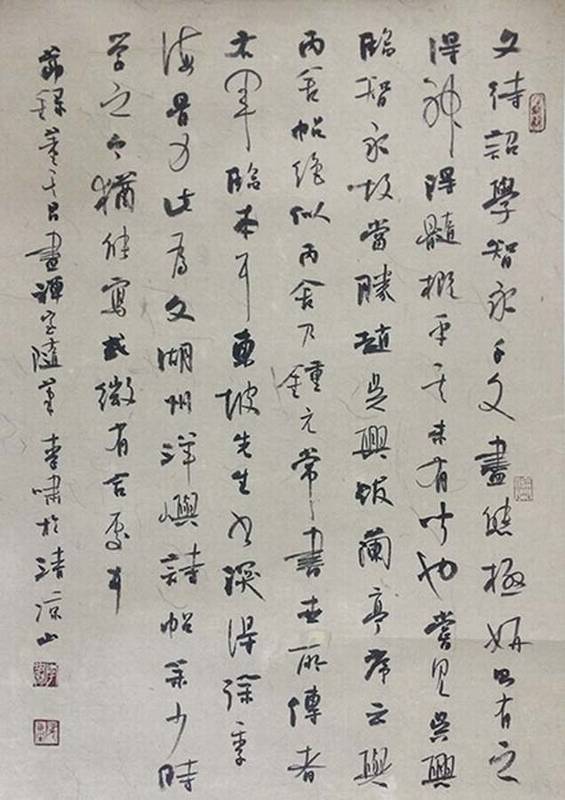 文待詔學智永千文盡態極妍則有之
得神得髓概乎其未有聞也嘗見吳興
臨智永故當勝趙吳興跋蘭亭序云與
丙舍帖絕似丙舍乃鍾元常書世所傳者
右軍臨本耳東坡先生書深得徐季
海骨力此為文湖州洋嶼詩帖余少時
學之今猶能寫或微有合處耳
節錄董其昌畫禪室隨筆 李嘯於清涼山